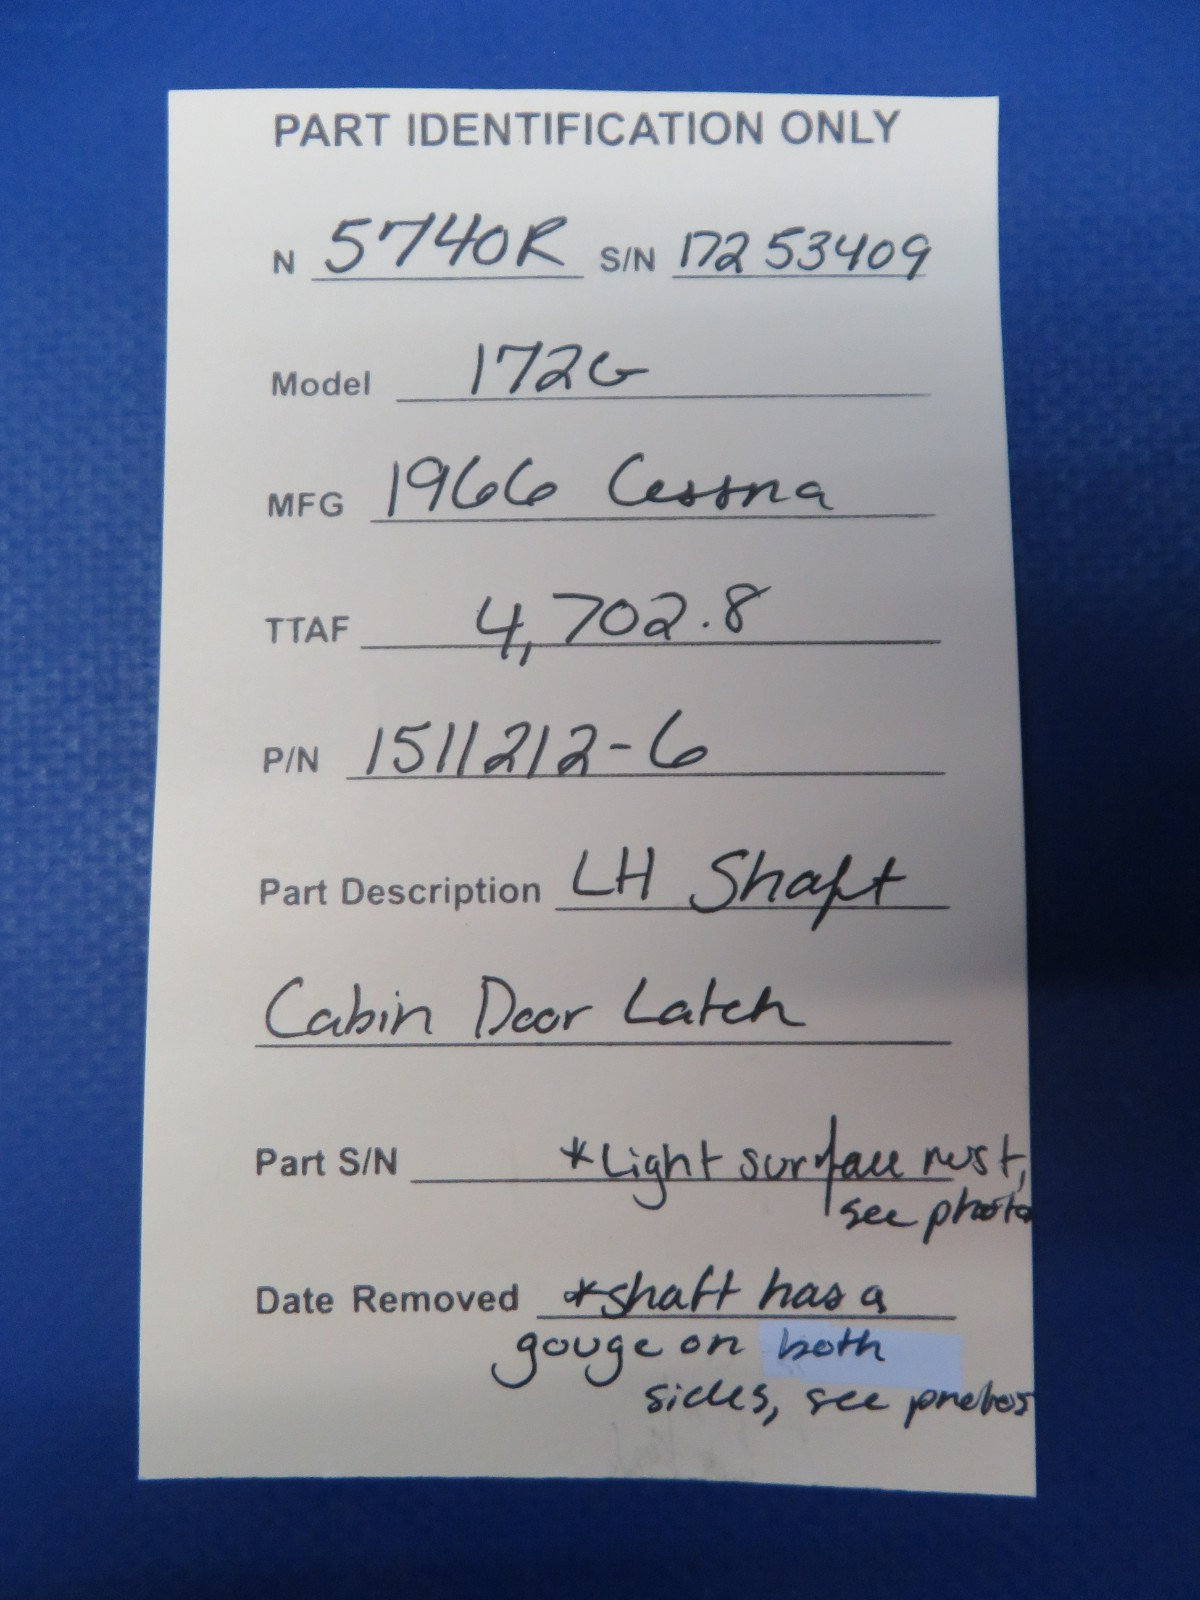 PART IDENTIFICATION ONLY
N 5740R S/N 172 53409
Model 172G
MFG 1966 Cessna
TTAF 4,702.8
P/N 1511212-6
Part Description LH Shaft
Cabin Door Latch
Part S/N *Light surface rust,
see photos
Date Removed *shaft has a
gouge on both
sides, see photos